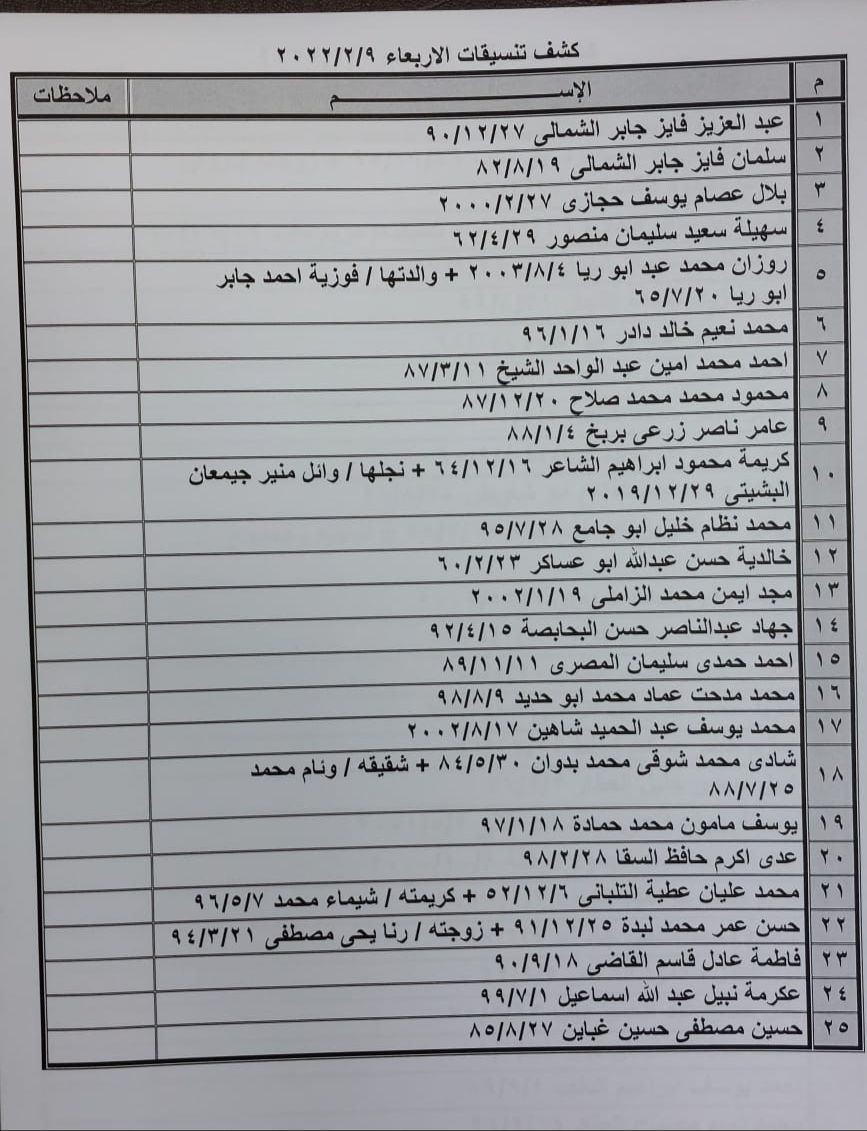 كشف تنسيقات الاربعاء ٢٠٢٢/٢/٩
م الإســـــــــم ملاحظات
١ عبد العزيز فايز جابر الشمالى ٩٠/١٢/٢٧
٢ سلمان فايز جابر الشمالى ٨٢/٨/١٩
٣ بلال عصام يوسف حجازى ٢٠٠٠/٢/٢٧
٤ سهيلة سعيد سليمان منصور ٦٢/٤/٢٩
٥ روزان محمد عبد ابو ريا ٢٠٠٣/٨/٤ + والدتها / فوزية احمد جابر
ابو ريا ٦٥/٧/٢٠
٦ محمد نعيم خالد دادر ٩٦/١/١٦
٧ احمد محمد امين عبد الواحد الشيخ ٨٧/٣/١١
٨ محمود محمد محمد صلاح ٨٧/١٢/٢٠
٩ عامر ناصر زرعى بربخ ٨٨/١/٤
١٠ كريمة محمود ابراهيم الشاعر ٦٤/١٢/١٦ + نجلها / وائل منير جيمعان
البشيتى ٢٠١٩/١٢/٢٩
١١ محمد نظام خليل ابو جامع ٩٥/٧/٢٨
١٢ خالدية حسن عبدالله ابو عساكر ٦٠/٢/٢٣
١٣ مجد ايمن محمد الزاملى ٢٠٠٢/١/١٩
١٤ جهاد عبدالناصر حسن البحابصة ٩٢/٤/١٥
١٥ احمد حمدى سليمان المصرى ٨٩/١١/١١
١٦ محمد مدحت عماد محمد ابو حديد ٩٨/٨/٩
١٧ محمد يوسف عبد الحميد شاهين ٢٠٠٢/٨/١٧
١٨ شادى محمد شوقى محمد بدوان ٨٤/٥/٣٠ + شقيقه / ونام محمد
٨٨/٧/٢٥
١٩ يوسف مامون محمد حمادة ٩٧/١/١٨
٢٠ عدى اكرم حافظ السقا ٩٨/٢/٢٨
٢١ محمد عليان عطية التلبانى ٥٢/١٢/٦ + كريمته / شيماء محمد ٩٦/٥/٧
٢٢ حسن عمر محمد لبدة ٩١/١٢/٢٥ + زوجته / رنا يحى مصطفى ٩٤/٣/٢١
٢٣ فاطمة عادل قاسم القاضى ٩٠/٩/١٨
٢٤ عكرمة نبيل عبد الله اسماعيل ٩٩/٧/١
٢٥ حسين مصطفى حسين غباين ٨٥/٨/٢٧